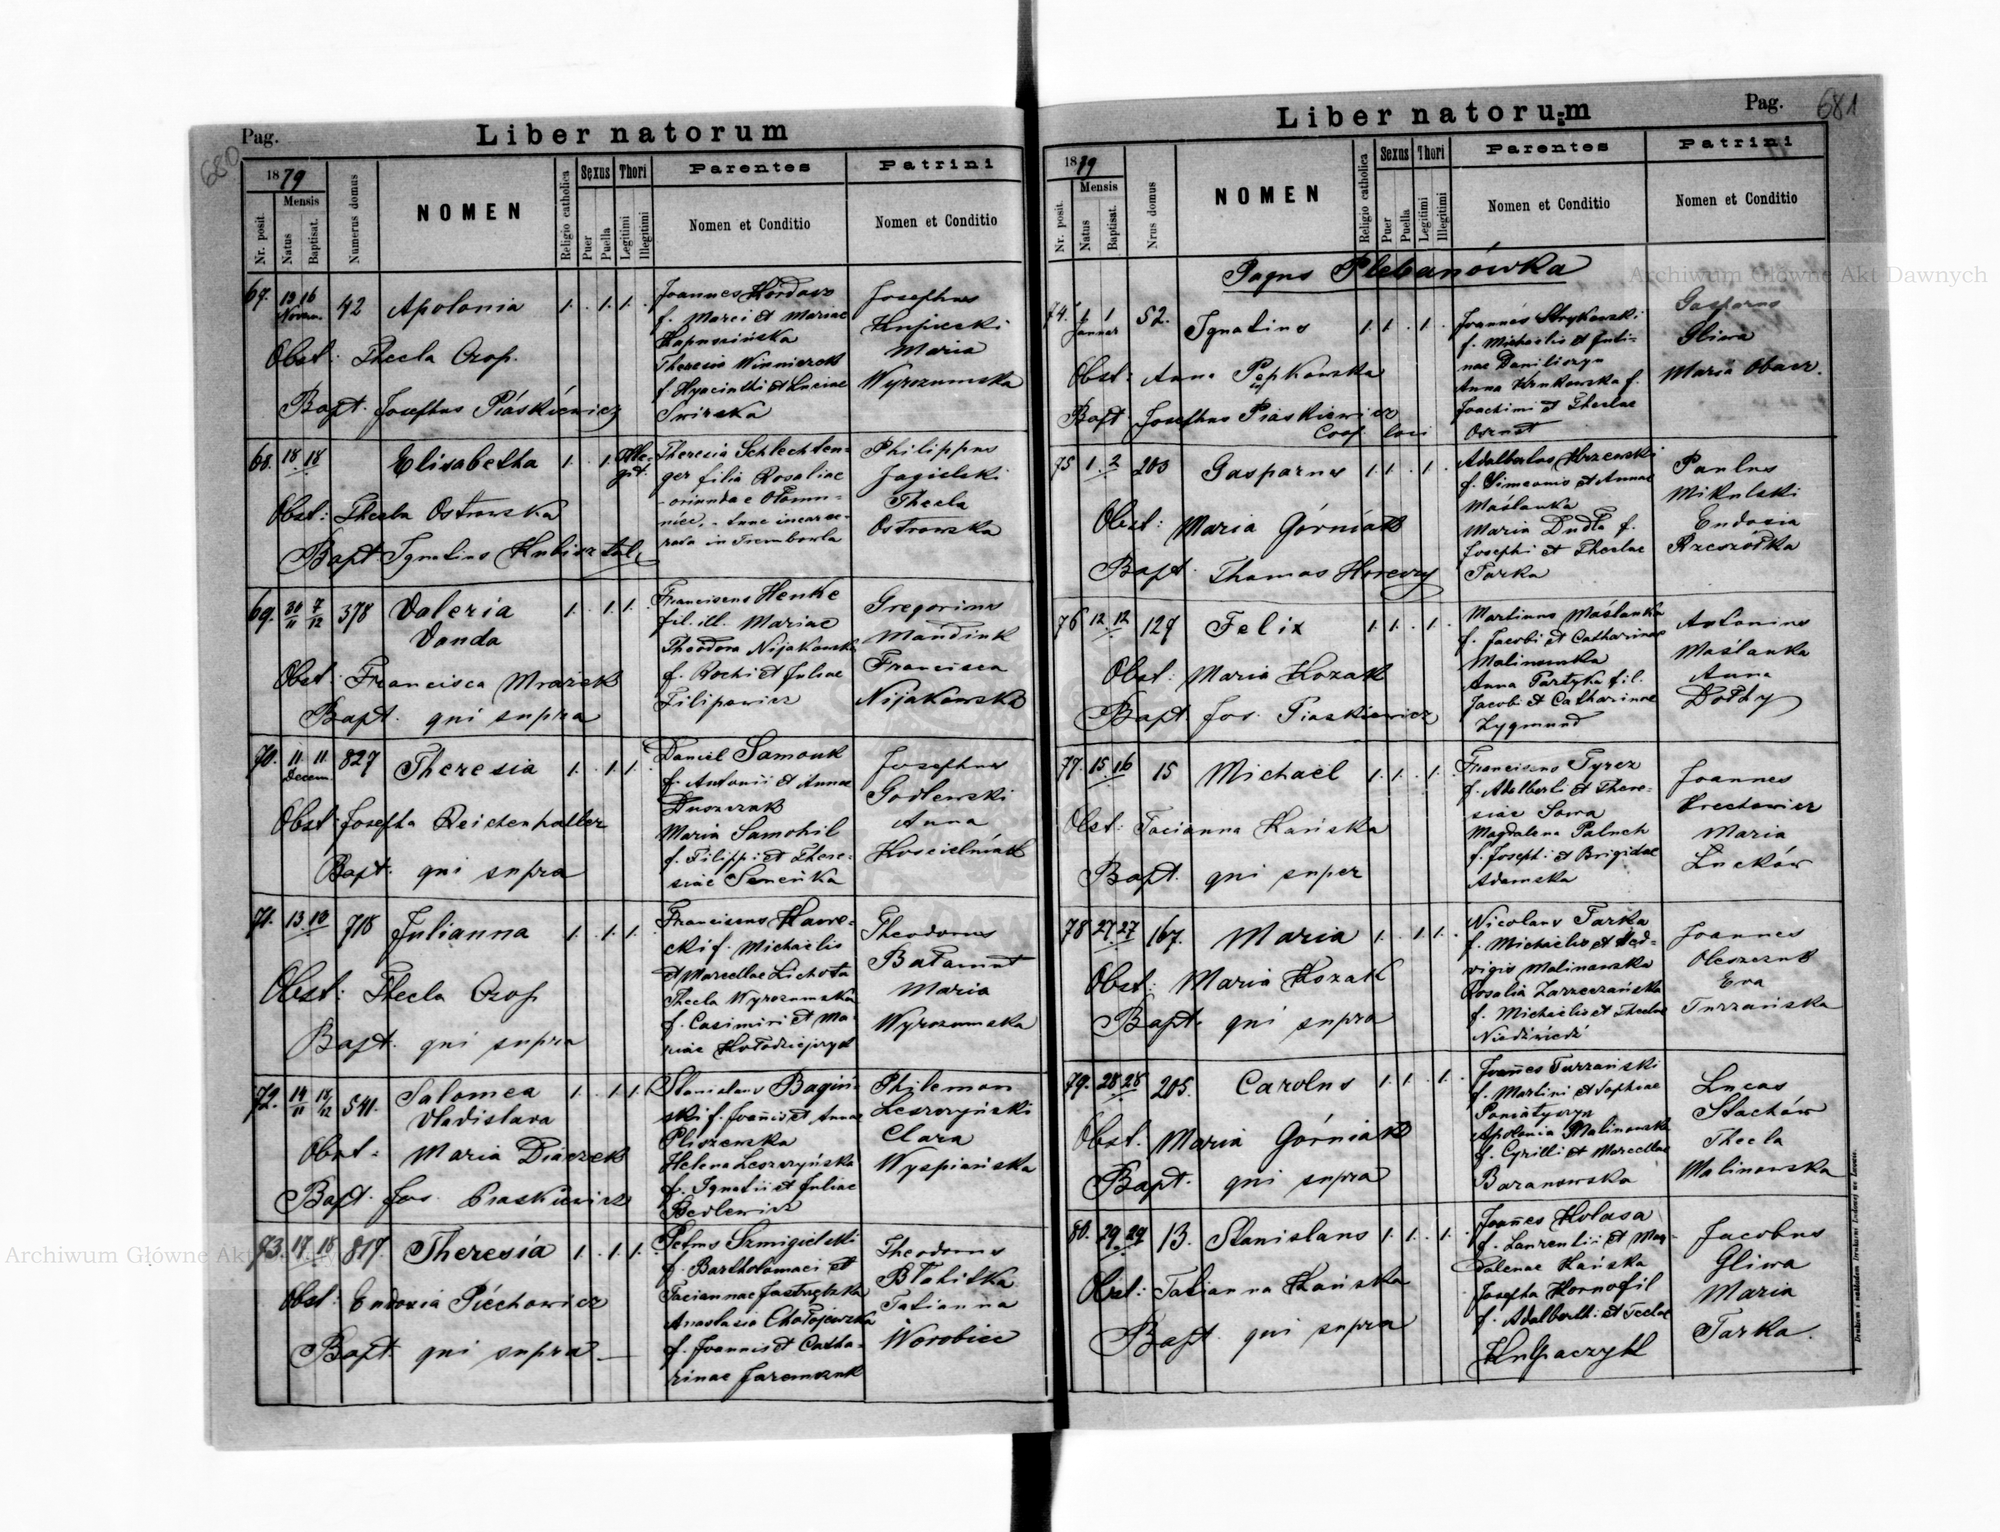 Pag.
680
Liber natorum
1879
Mensis
Nr. posit.
Natus
Baptisat.
Numerus domus
NOMEN
Religio catholica
Sexus
Puer
Puella
Thori
Legitimi
Illegitimi
Parentes
Nomen et Conditio
Patrini
Nomen et Conditio
67. 13 16 42 Apolonia 1. 1. 1.
Novem.
Obst: Thecla Czop.
Bapt. Josephus Piaskiewicz
f. Marci et Mariae
f. Hyacinthi et Luciae
Josephus
Maria
Wyrozumska
68. 18 18 Elisabetha 1. 1. Ille-
git.
Obst: Thecla Ostrowska
Bapt Ignatius
Theresia Schlechten-
ger filia Rosaliae
oriunda e Ołomu-
niec, - tunc incarce-
rata in Trembowla
Philippus
Jagielski
Thecla
Ostrowska
69. 30/11 7/12 378 Valeria 1. 1. 1.
Vanda
Obst. Francisca Mrazek
Bapt. qui supra
Franciscus Henke
fil. ill. Mariae
Theodora Nijakowska
f. Rochi et Juliae
Filipowicz
Gregorius
Francisca
Nijakowska
70. 11 11 827 Theresia 1. 1. 1.
Decem.
Obst Josepha Reichenhalter
Bapt. qui supra
Daniel Samouk
f. Antonii et Annae
Maria Samohil
f. Filippi et There-
siae
Josephus
Godlewski
Anna
Kościelniak
71. 13 13 718 Julianna 1. 1. 1.
Obst: Thecla Czop
Bapt. qui supra
Franciscus Hawre-
cki f. Michaelis
et Marcellae Lichota
Thecla Wyrozumska
f. Casimiri et Ma-
riae Kołodziejczyk
Theodorus
Bałamut
Maria
Wyrozumska
72. 14/11 541. Salomea 1. 1. 1.
Vladislava
Obst. Maria
Bapt. Jos. Piaskiewicz
Stanislaus Bagiń-
ski f. Joannis et Annae
Pliszewska
Helena Leszczyńska
f. Ignatii et Juliae
Philemon
Leszczyński
Clara
Wyspiańska
73. 17 18 817. Theresia 1. 1. 1.
Obst: Eudoxia Piechowicz
Bapt qui supra
Petrus Szmigielski
f. Bartholomaei et
Taciannae Jastrzębska
Anastasia Chołojewska
f. Joannis et Catha-
rinae Jaremczuk
Theodorus
Błahitka
Tatianna
Worobiec
Liber natorum
Pag.
681
1879
Mensis
Nr. posit.
Natus
Baptisat.
Nrus domus
NOMEN
Religio catholica
Sexus
Puer
Puella
Thori
Legitimi
Illegitimi
Parentes
Nomen et Conditio
Patrini
Nomen et Conditio
Pagus Plebanówka
74. 1 1 52. Ignatius 1. 1. 1.
Januar
Obst. Anna
Bapt Josephus Piaskiewicz
Coop. loci
Joannes Strykowski
f. Michaelis et Juli-
nae Daniliszyn
Anna Krukowska f.
Joachimi et Theclae
Gasparus
Gliwa
Maria
75 1. 2 203 Gasparus 1. 1. 1.
Obst: Maria Górniak
Bapt. Thomas Horeczy
Adalbertus
f. Simeonis et Annae
Maślanka
Maria Dudła f.
Josephi et Theclae
Tarka
Paulus
Mikulski
Eudoxia
Rzeszótka
76 12 12 127 Felix 1. 1. 1.
Obst: Maria Kozak
Bapt Jos. Piaskiewicz
Martinus Maślanka
f. Jacobi et Catharinae
Malinowska
Anna Partyka fil.
Jacobi et Catharinae
Zygmund
Antonius
Maślanka
Anna
77. 15. 16 15 Michaël 1. 1. 1.
Obst: Tacianna Kańska
Bapt. qui super
Franciscus Tyrcz
f. Adalberti et There-
siae Sowa
Magdalena Paluch
f. Josephi et Brigidae
Adamska
Joannes
Krechowicz
Maria
Lucków
78 27 27 167. Maria 1. 1. 1.
Obst: Maria Kozak
Bapt. qui supra
Nicolaus Tarka
f. Michaelis et Hed-
vigis Malinowska
Rosalia Zarzeczańska
f. Michaelis et Theclae
Niedźwiedź
Joannes
Eva
Turzańska
79. 28 28 205. Carolus 1. 1. 1.
Obst. Maria Górniak
Bapt. qui supra
Joannes Turzański
f. Martini et Sophiae
Poniatyszyn
Apolonia Malinowska
f. Cyrilli et Marcellae
Baranowska
Lucas
Stachów
Thecla
Malinowska
80. 29 29 13. Stanislaus 1. 1. 1.
Obst: Tatianna Kańska
Bapt. qui supra
Joannes Kolasa
f. Laurentii et Mag-
dalenae Kańska
Josepha Hornofil
f. Adalberti et Teclae
Jacobus
Gliwa
Maria
Tarka.
Drukiem i nakładem Drukarni Ludowej we Lwowie.
Archiwum Główne Akt Dawnych
Archiwum Główne Akt Dawnych